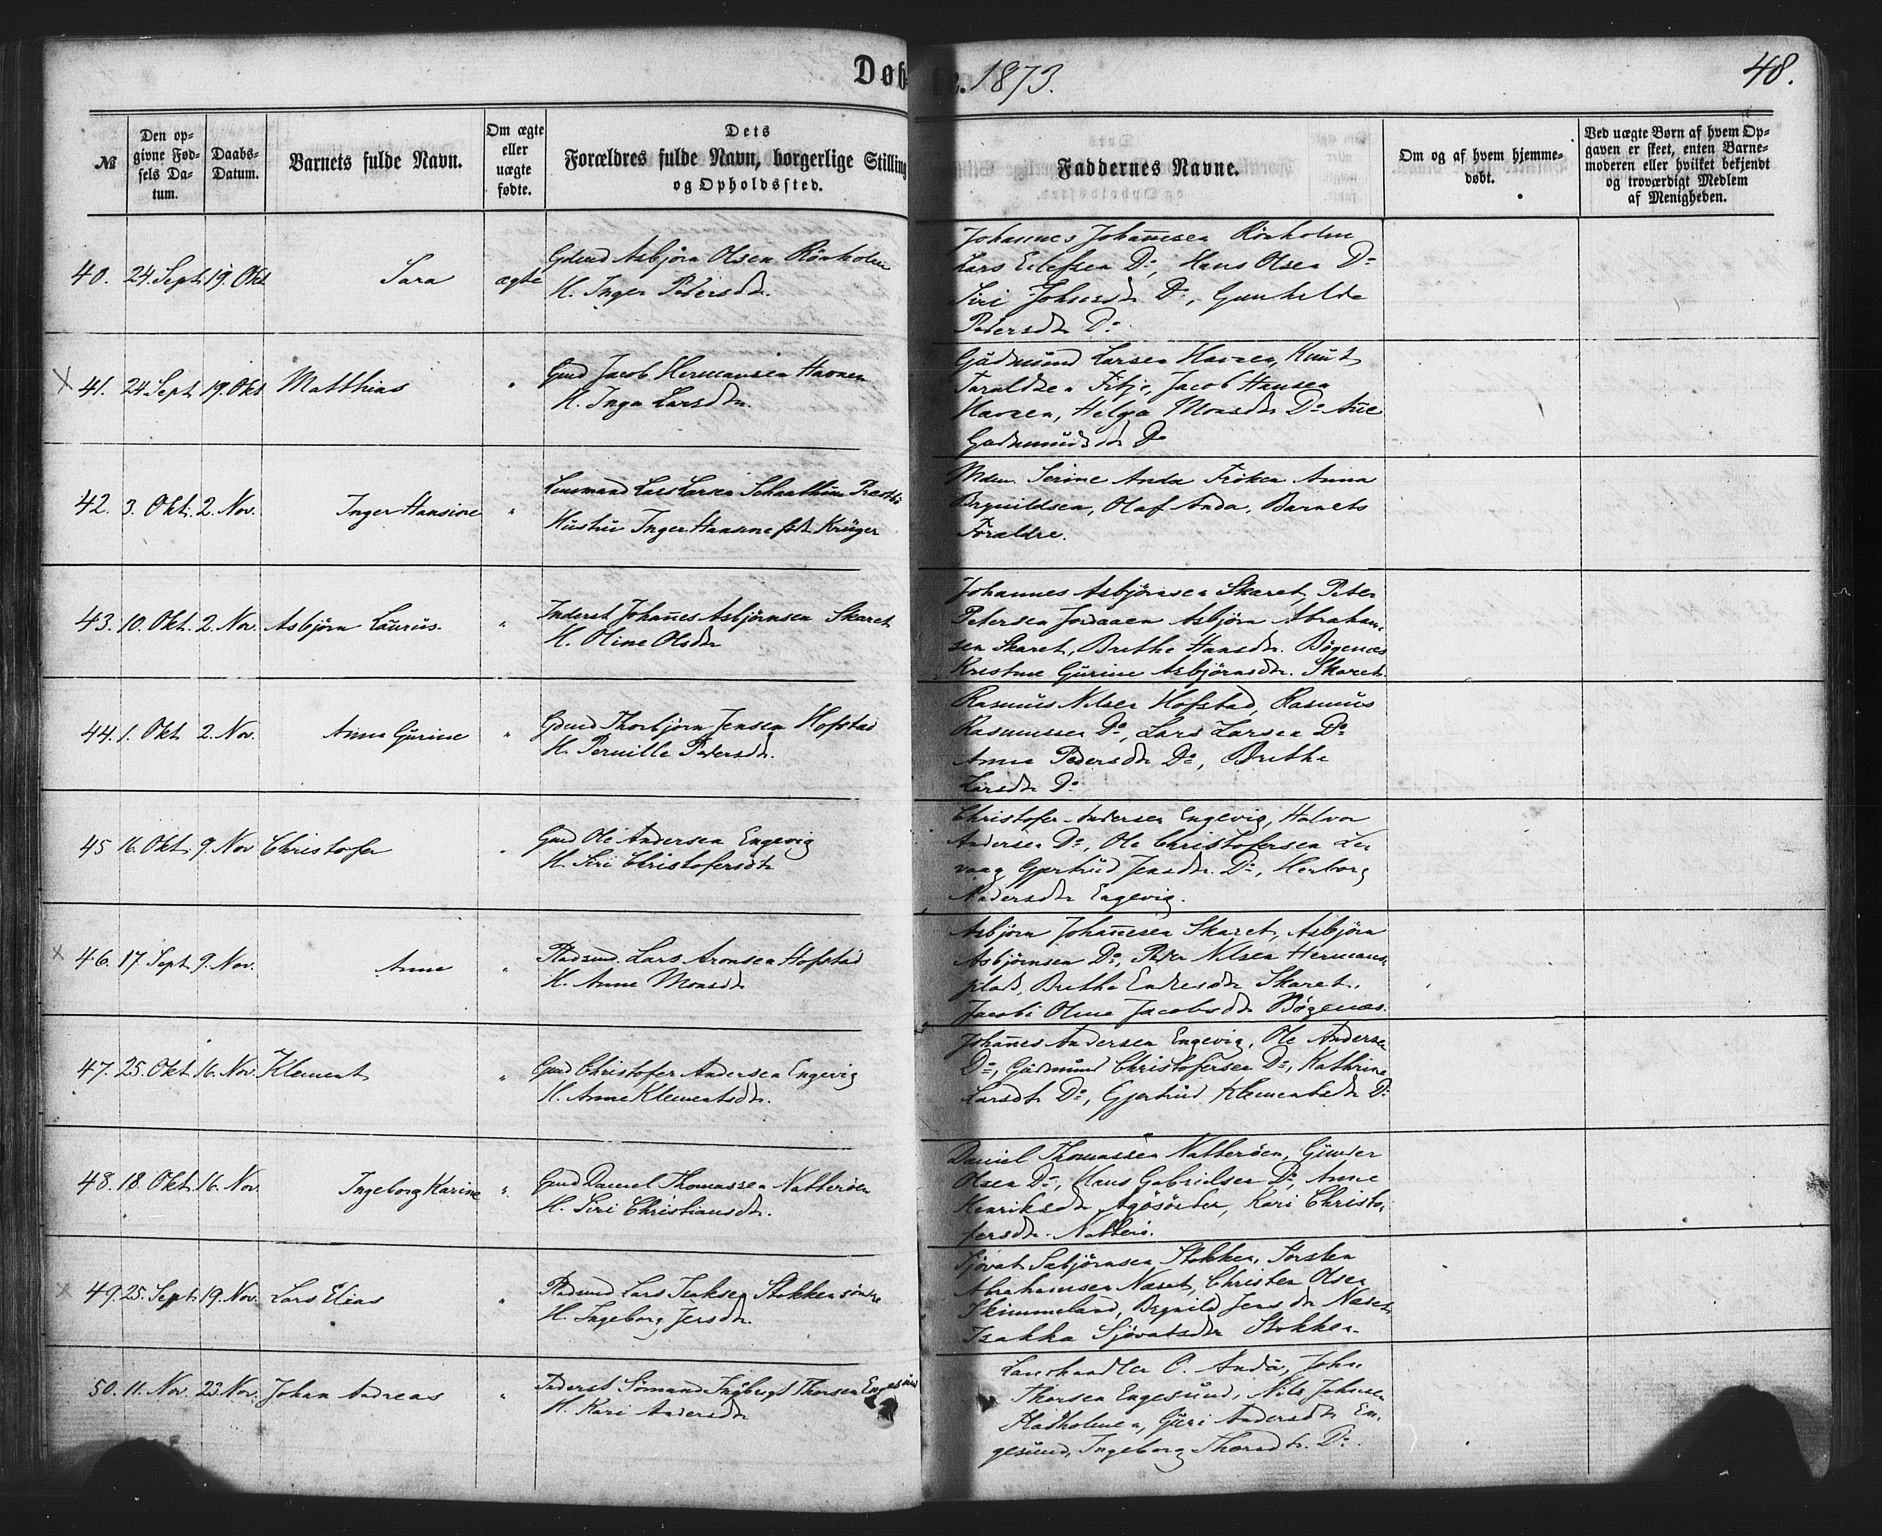 Døbte. 1873.
48.
№
Den opgivne Fødsels Datum.
Daabs-Datum.
Barnets fulde Navn.
Om ægte eller uægte fødte.
Dets Forældres fulde Navn, borgerlige Stilling og Opholdssted.
Faddernes Navne.
Om og af hvem hjemmedøbt.
Ved uægte Børn af hvem Opgaven er skeet, enten Barnemoderen eller hvilket bekjendt og troværdigt Medlem af Menigheden.
40. 24. Sept. 19. Okt Sara ægte
Gdmd Asbjørn Olsen Rönholm
H. Inger Pedersdtr.
Johannes Johannesen Rönholm
Lars Eilefsen Do, Hans Olsen Do
Siri Johnsdtr Do, Gunhilde
Pedersdtr Do.
41. 24 Sept. 19. Okt Matthias "
Gmd Jacob Hermansen Havnen
H. Inga Larsdtr.
Gudmund Larsen Havnen, Knut
Taraldsen Fitje, Jacob Hansen
Havnen, Helga Monsdtr Do Ane
Gudmundsdtr Do
42. 3. Okt. 2. Nov. Inger Hansine "
Lensmand Lars Larsen Schaathun
Hustru Inger Hansine født Krüger
Mdm. Serine Anda Frøken Anna
Brynildsen, Olaf Anda, Barnets
Forældre.
43. 10. Okt. 2. Nov. Asbjørn Laurus. "
Inderst Johanes Asbjørnsen Skaret
H. Oline Olsdtr
Johannes Asbjørnsen Skaret, Peter
Petersen Jordaaen Asbjørn Abraham-
sen Skaret, Brethe Hansdtr. Bögenæs
Kristine Gurine Asbjørnsdtr. Skaret.
44. 1. Okt 2. Nov. Anna Gurine "
Gdmd Thorbjørn Jensen Hofstad
H. Pernille Pedersdtr.
Rasmus Nilsen Hofstad, Rasmus
Rasmussen Do, Lars Larsen Do
Anne Pedersdtr Do, Brethe
Larsdtr Do.
45 16. Okt. 9. Nov Christofer "
Gmd Ole Andersen Engevig
H. Siri Christofersdtr
Christofer Andersen Engevig, Halvor
Andersen Do, Ole Christofersen Ler
vaag Gjertrud Jensdtr. Do, Herborg
Andersdtr Engevig.
46. 17 Sept. 9. Nov. Anne "
Pladsmd. Lars Aronsen Hofstad
H. Anne Monsdtr
Asbjørn Johannesen Skaret, Asbjørn
Asbjørnsen Do, Peder Nilsen Hermans-
plads, Brethe Endresdtr Skaret.
Jacobi Oline Jacobsdtr Bögenæs.
47. 25. Okt. 16. Nov. Klement "
Gmd Christofer Andersen Engevig
H. Anne Klementsdtr.
Johannes Andersen Engevig, Ole Andersen
Do, Gudmund Christofersen Do, Kathrine
Larsdtr Do, Gjertrud Klementsdtr Do
48. 18. Okt. 16. Nov. Ingeborg Karine "
Gmd Daniel Thomassen Natteröen
H. Siri Christiansdtr.
Daniel Thomassen Natteröen, Gunder
Olsen Do, Hans Gabrielsen Do, Anne
Henriksdtr Kari Christo-
fersdtr. Natterö.
49. 25. Sept. 19. Nov. Lars Elias "
Pladsmd Lars Isaksen Stokken söndre
H. Ingeborg Jensdtr.
Sjövat Sabjørnsen Stokken, Torsten
Abrahamsen Næset, Christen Olsen
Skimmeland, Brynild Jensdtr Næset
Isakka Sjövatsdtr Stokken
50. 11. Nov. 23. Nov. Johan Andreas "
Inderst Sömand Ingbrigt Thorsen Engesund
H. Kari Andersdtr
Lanshandler O. Anda, John
Thorsen Engesund, Nils Johnsen
Fladholmen, Guri Andersdtr En-
gesund, Ingeborg Thorsdtr. Do.